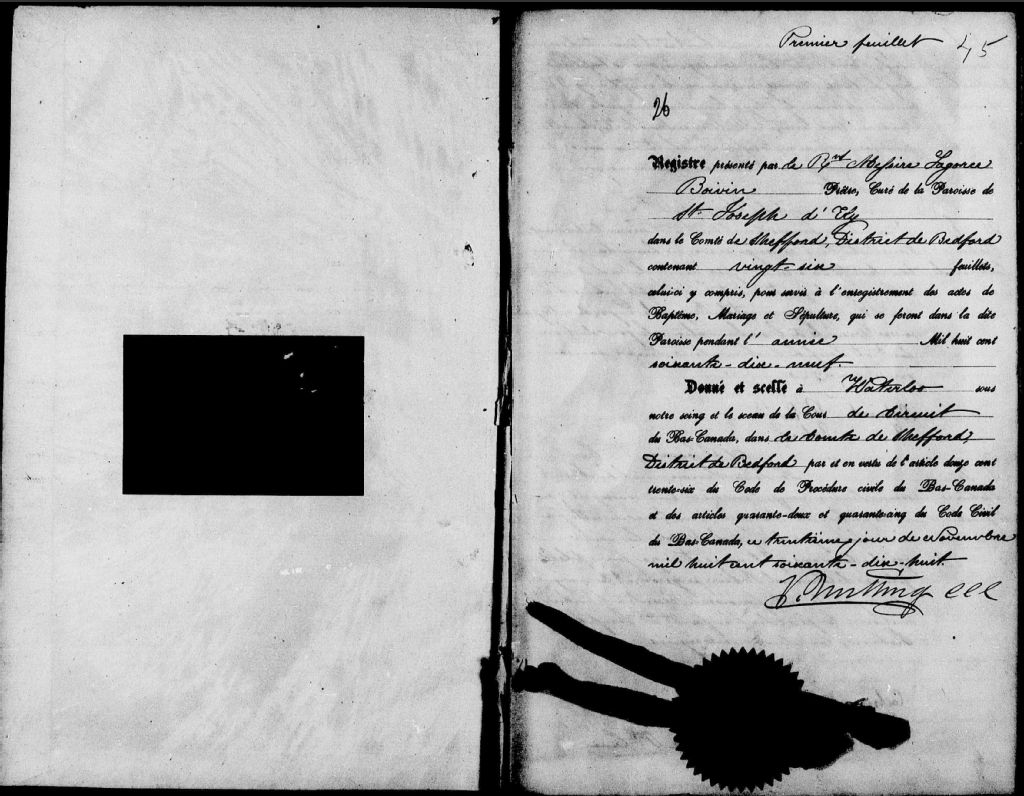 Premier feuillet 45
26
Registre présenté par le Rvt Messire Lagorce
Boivin Prêtre, Curé de la Paroisse de
St. Joseph d'Ely
dans le Comté de Shefford, District de Bedford
contenant vingt-six feuillets,
celui-ci y compris, pour servir à l'enregistrement des actes de
Baptême, Mariage et Sépulture, qui se feront dans la dite
Paroisse pendant l'année Mil huit cent
soixante-dix-neuf.
Donné et scellé à Waterloo sous
notre seing et le sceau de la Cour de Circuit
du Bas-Canada, dans le Comté de Shefford,
District de Bedford par et en vertu de l'article douze cent
trente-six du Code de Procédure civile du Bas-Canada
et des articles quarante-deux et quarante-cinq du Code Civil
du Bas-Canada, ce trentième jour de Novembre
mil huit cent soixante-dix-huit.
CCC